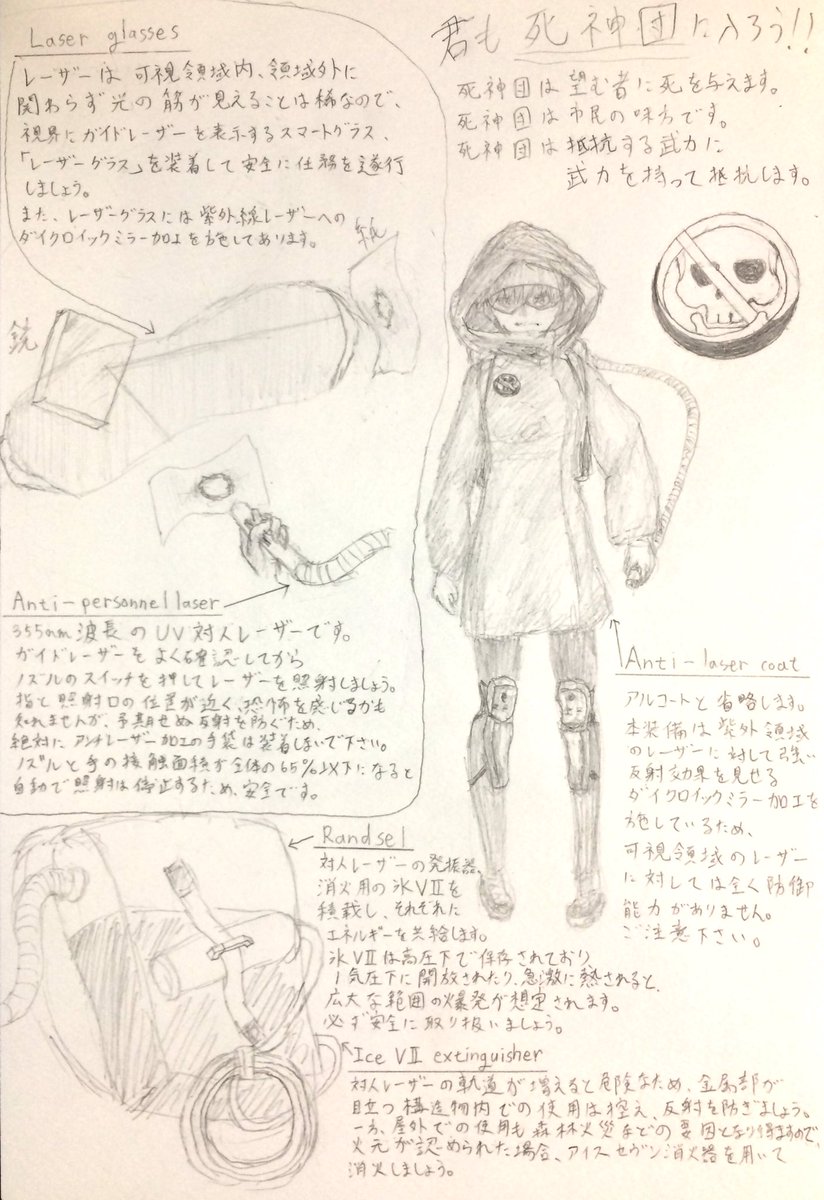 Laser glasses
レーザーは可視領域内、領域外に
関わらず光の筋が見えることは稀なので、
視界にガイドレーザーを表示するスマートグラス、
「レーザーグラス」を装着して安全に任務を遂行
しましょう。
また、レーザーグラスには紫外線レーザーへの
ダイクロイックミラー加工を施してあります。
紙
銃
君も死神団に入ろう!!
死神団は望む者に死を与えます。
死神団は市民の味方です。
死神団は抵抗する武力に
武力を持って抵抗します。
Anti-personnel laser
355nm波長のUV対人レーザーです。
ガイドレーザーをよく確認してから
ノズルのスイッチを押してレーザーを照射しましょう。
指と照射口の位置が近く、恐怖を感じるかも
知れませんが、予期せぬ反射を防ぐため、
絶対にアンチレーザー加工の手袋は装着しないで下さい。
ノズルと手の接触面積が全体の65%以下になると
自動で照射は停止するため、安全です。
Anti-laser coat
アルコートと省略します。
本装備は紫外領域
のレーザーに対して強い
反射効果を見せる
ダイクロイックミラー加工を
施しているため、
可視領域のレーザー
に対しては全く防御
能力がありません。
ご注意下さい。
Randsel
対人レーザーの発振器、
消火用の氷VIIを
積載し、それぞれに
エネルギーを共給します。
氷VIIは高圧下で保存されており、
1気圧下に開放されたり、急激に熱されると、
広大な範囲の爆発が想定されます。
必ず安全に取り扱いましょう。
Ice VII extinguisher
対人レーザーの軌道が増えると危険なため、金属部が
目立つ構造物内での使用は控え、反射を防ぎましょう。
一方、屋外での使用も森林火災などの要因となり得ますので、
火元が認められた場合、アイスセヴン消火器を用いて
消火しましょう。